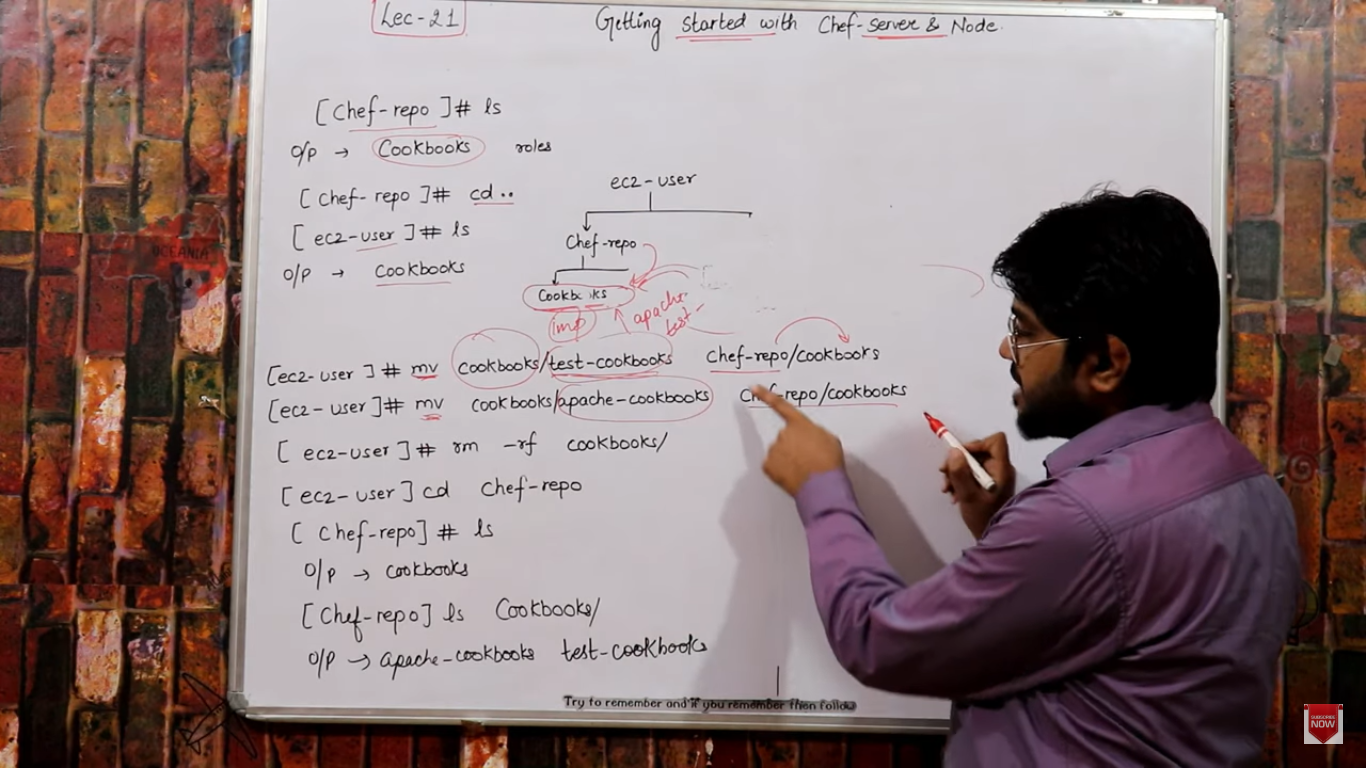 Lec-21
Getting started with Chef-Server & Node.
[Chef-repo]# ls
O/p → Cookbooks roles
[Chef-repo]# cd..
[ec2-user]# ls
O/p → Cookbooks
ec2-user
Chef-repo
Cookbooks
imp
apache-
test-
[ec2-user]# mv cookbooks/test-cookbooks Chef-repo/cookbooks
[ec2-user]# mv cookbooks/apache-cookbooks Chef-repo/cookbooks
[ec2-user]# rm -rf cookbooks/
[ec2-user] cd Chef-repo
[Chef-repo]# ls
O/p → cookbooks
[Chef-repo] ls Cookbooks/
O/p → apache-cookbooks test-cookbooks
Try to remember and if you remember then follow
OCEANIA
SUBSCRIBE
NOW